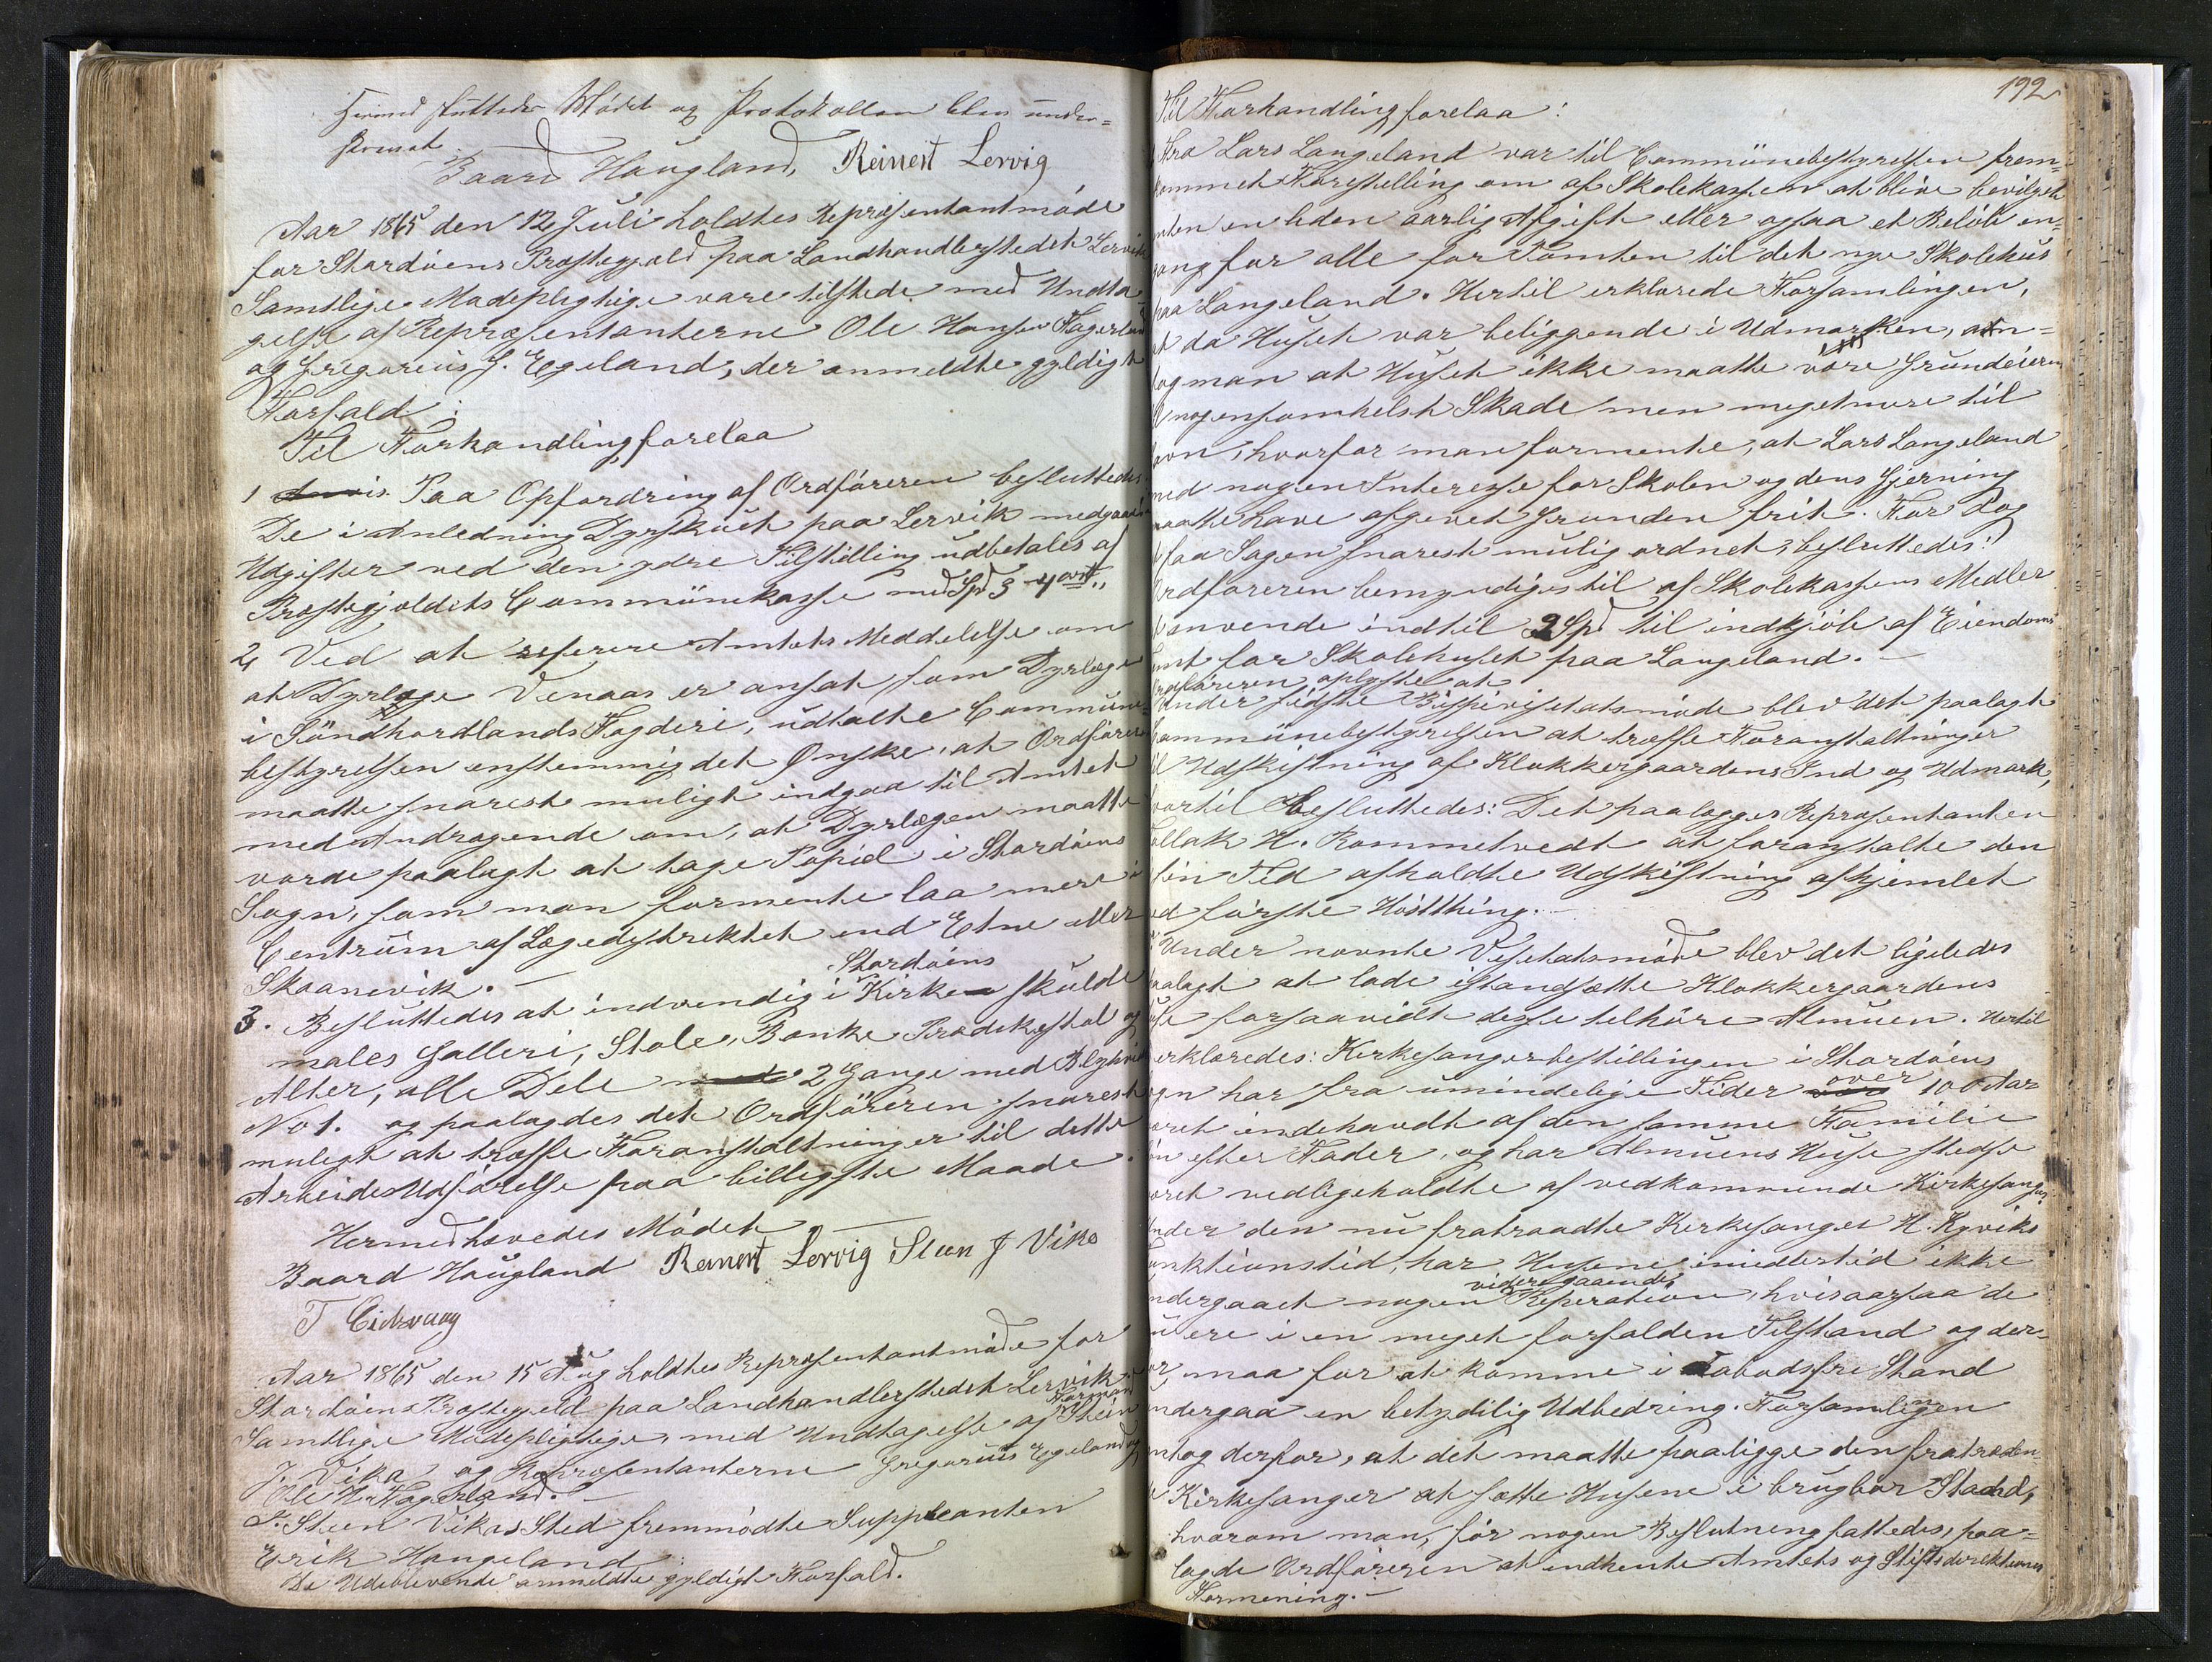 Hermed sluttedes Mödet og Protokollen blev under-
skrevet.
Baard Haugland, Reinert Lervig
Aar 1865 den 12 Juli holdtes Repræsentantmöde
for Stordöens Præstegjæld paa Landhandlerstedet Lervik
Samtlige Mødepligtige vare tilstede med Undta-
gelse af Repræsentanterne Ole Hansen Fagerland
og Gregorius G. Egeland, der anmeldte gyldigt
Forfald:
Til Forhandling forelaa
1 Paa Opfordring af Ordföreren besluttedes
De i Anledning Dyrskuet paa Lervik medgaaede
Udgifter ved den ydre Tilstilling udbetales af
Præstegjeldets Communekasse med Spd 3 - 4 ort "
2, Ved at referere Amtets Meddelelse om
at Dyrlæge Venaas er ansat som Dyrlæge
i Söndhordlands Fogderi, udtalte Commune-
bestyrelsen enstemmig det Ønske, at Ordföreren
maatte snarest muligt indgaa til Amtet
med Andragende om, at Dyrlægen maatte
vorde paalagt at tage Bopæl i Stordöens
Sogn, som man formente laa mere i
Centrum af Lægedistriktet end Etne eller
Skaanevik. —
Stordöens
3. Besluttedes at indvendig i Kirken skulde
males Galleri, Stole, Bænke Prædikestol og
Alter, alle Dele 2 Gange med Blyhvidt
No 1. og paalagdes det Ordföreren snarest
muligt at træffe Foranstaltninger til dette
Arbeides Udførelse paa billigste Maade.
Hermed hævedes Mödet —
Baard Haugland Reinert Lervig Steen J Vika
T Eidsvaag
Aar 1865 den 15 Aug holdtes Repræsentantmöde for
Stordöens Præstegjeld paa Landhandlerstedet Lervik
Formand
Samtlige Mödepligtige, med Undtagelse af Steen
J. Vika og Repræsentanterne Gregorius Egeland og
Ole H. Fagerland. —
I Steen Vikas Sted fremmødte Suppleanten
Erik Haugeland
De Udeblivende anmeldte gyldigt Forfald.
192
Til Forhandling forelaa:
Fra Lars Langeland var til Communebestyrelsen frem-
kommet Forestilling om af Skolekassen at blive bevilget
enten en liden aarlig Afgift eller ogsaa et Beløb en-
gang for alle for Tomten til det nye Skolehus
paa Langeland. Hertil erklærede Forsamlingen,
at da Huset var beliggende i Udmarken, an-
tog man at Huset ikke maatte være Grundeieren
til nogensomhelst Skade men meget mere til
Gavn, hvorfor man formente, at Lars Langeland
med nogen Interesse for Skolen og dens Gjerning
maatte have afgivet Grunden frit. For Dog
at faa Sagen snarest mulig ordnet, besluttedes:
Ordføreren bemyndiges til af Skolekassens Midler
at anvende indtil 2 Spd til indkjöb af Eiendoms
Tomt for Skolehuset paa Langeland. —
Ordföreren oplyste at
Under sidste Bispevisitatsmöde blev det paalagt
Communebestyrelsen at træffe Foranstaltninger
til Udskiftning af Klokkergaardens Ind og Udmark,
hvortil besluttedes: Det paalægges Repræsentanten
Tollak H. Rommetvedt at foranstalte den
i sin Tid afholdte Udskiftning afhjemlet
ved förste Høstthing. —
Under nævnte Visitatsmöde blev det ligeledes
paalagt at lade istandsætte Klokkergaardens
Huse forsaavidt disse tilhöre Almuen. Hertil
erklæredes: Kirkesangerbestillingen i Stordöens
over
Sogn har fra umindelige Tider 100 Aar
været indehavdt af den samme Familie
Søn efter Fader, og har Almuens Huse stedse
været vedligeholdte af vedkommende Kirkesanger.
Under den nu fratraadte Kirkesanger H. Kyviks
Funktionstid, har Husene imidlertid ikke
videregaaende
undergaaet nogen Reperation, hvisaarsaa de
nu ere i en meget forfalden Tilstand og der-
for maa for at komme i aabodsfri Stand
undergaa en betydelig Udbedring. Forsamlingen
antog derfor, at det maatte paaligge den fratræden-
de Kirkesanger at sætte Husene i brugbar Stand,
hvorom man, før nogen Beslutning fattedes, paa-
lagde Ordföreren at indhente Amtets og Stiftsdirektionens
Formening. —